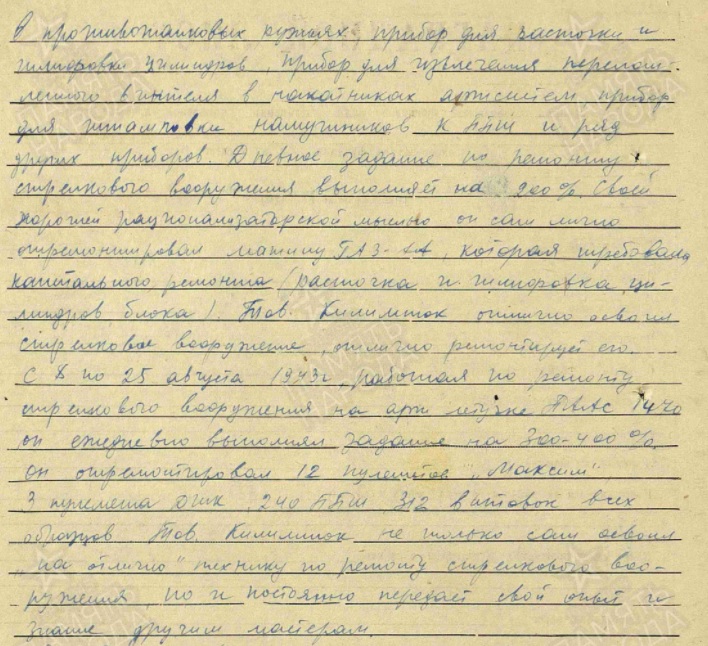 в противотанковых ружьях, прибор для расточки и
шлифовки цилиндров, прибор для извлечения перелом-
ленного винтеля в накатниках артсистем, прибор
для штамповки намушников к ППШ и ряд
других приборов. Дневное задание по ремонту
стрелкового вооружения выполняет на 200%. Своей
хорошей рационализаторской мыслью он сам лично
отремонтировал машину ГАЗ-АА, которая требовала
капитального ремонта /расточка и шлифовка ци-
линдров блока/. Тов. Килимник отлично освоил
стрелковое вооружение, отлично ремонтирует его.
С по 25 августа 1943г, работая по ремонту
стрелкового вооружения на арт летучке 1440
он ежедневно выполнял задание на 300-400%.
он отремонтировал 12 пулеметов "Максим",
3 пулемета ДШК, 240 ППШ, 312 винтовок всех
образцов. Тов. Килимник не только сам освоил
"на отлично" технику по ремонту стрелкового воо-
ружения, но и постоянно передает свой опыт и
знание другим мастерам.
ПАМЯТЬ
НАРОДА